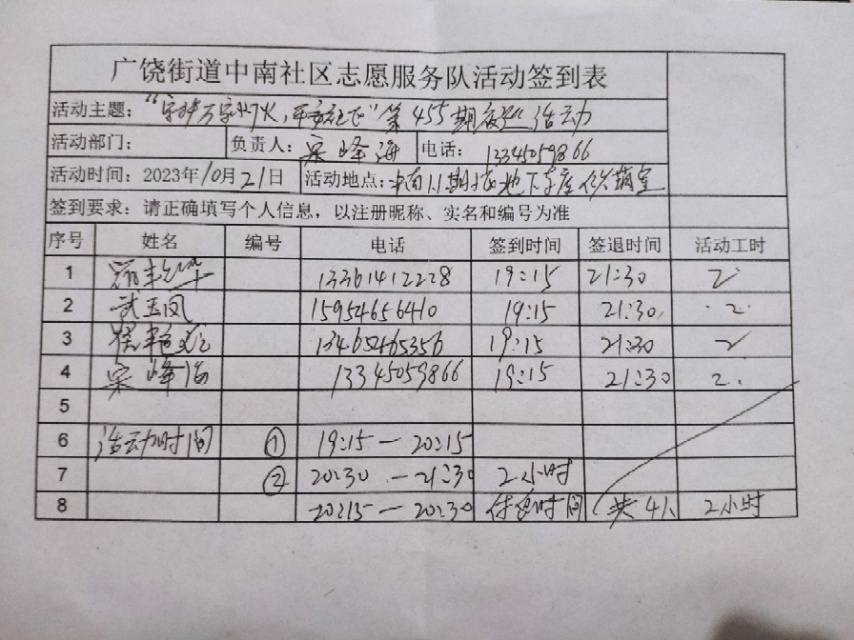 广饶街道中南社区志愿服务队活动签到表
活动主题：“守护万家灯火，平安社区”第455期夜巡活动
活动部门： 负责人：宋峰海 电话：13345059866
活动时间：2023年10月21日 活动地点：中南1.1期 地下车库
签到要求：请正确填写个人信息，以注册昵称、实名和编号为准
序号 姓名 编号 电话 签到时间 签退时间 活动工时
1 13361412228 19:15 21:30 2
2 武玉凤 15954656410 19:15 21:30 2.
3 13465265356 19:15 21:30 2
4 宋峰海 13345059866 19:15 21:30 2.
5
6 活动时间 ① 19:15—20:15
7 ② 20:30—21:30 2小时
8 20:15—20:30 休息时间 共4人 2小时